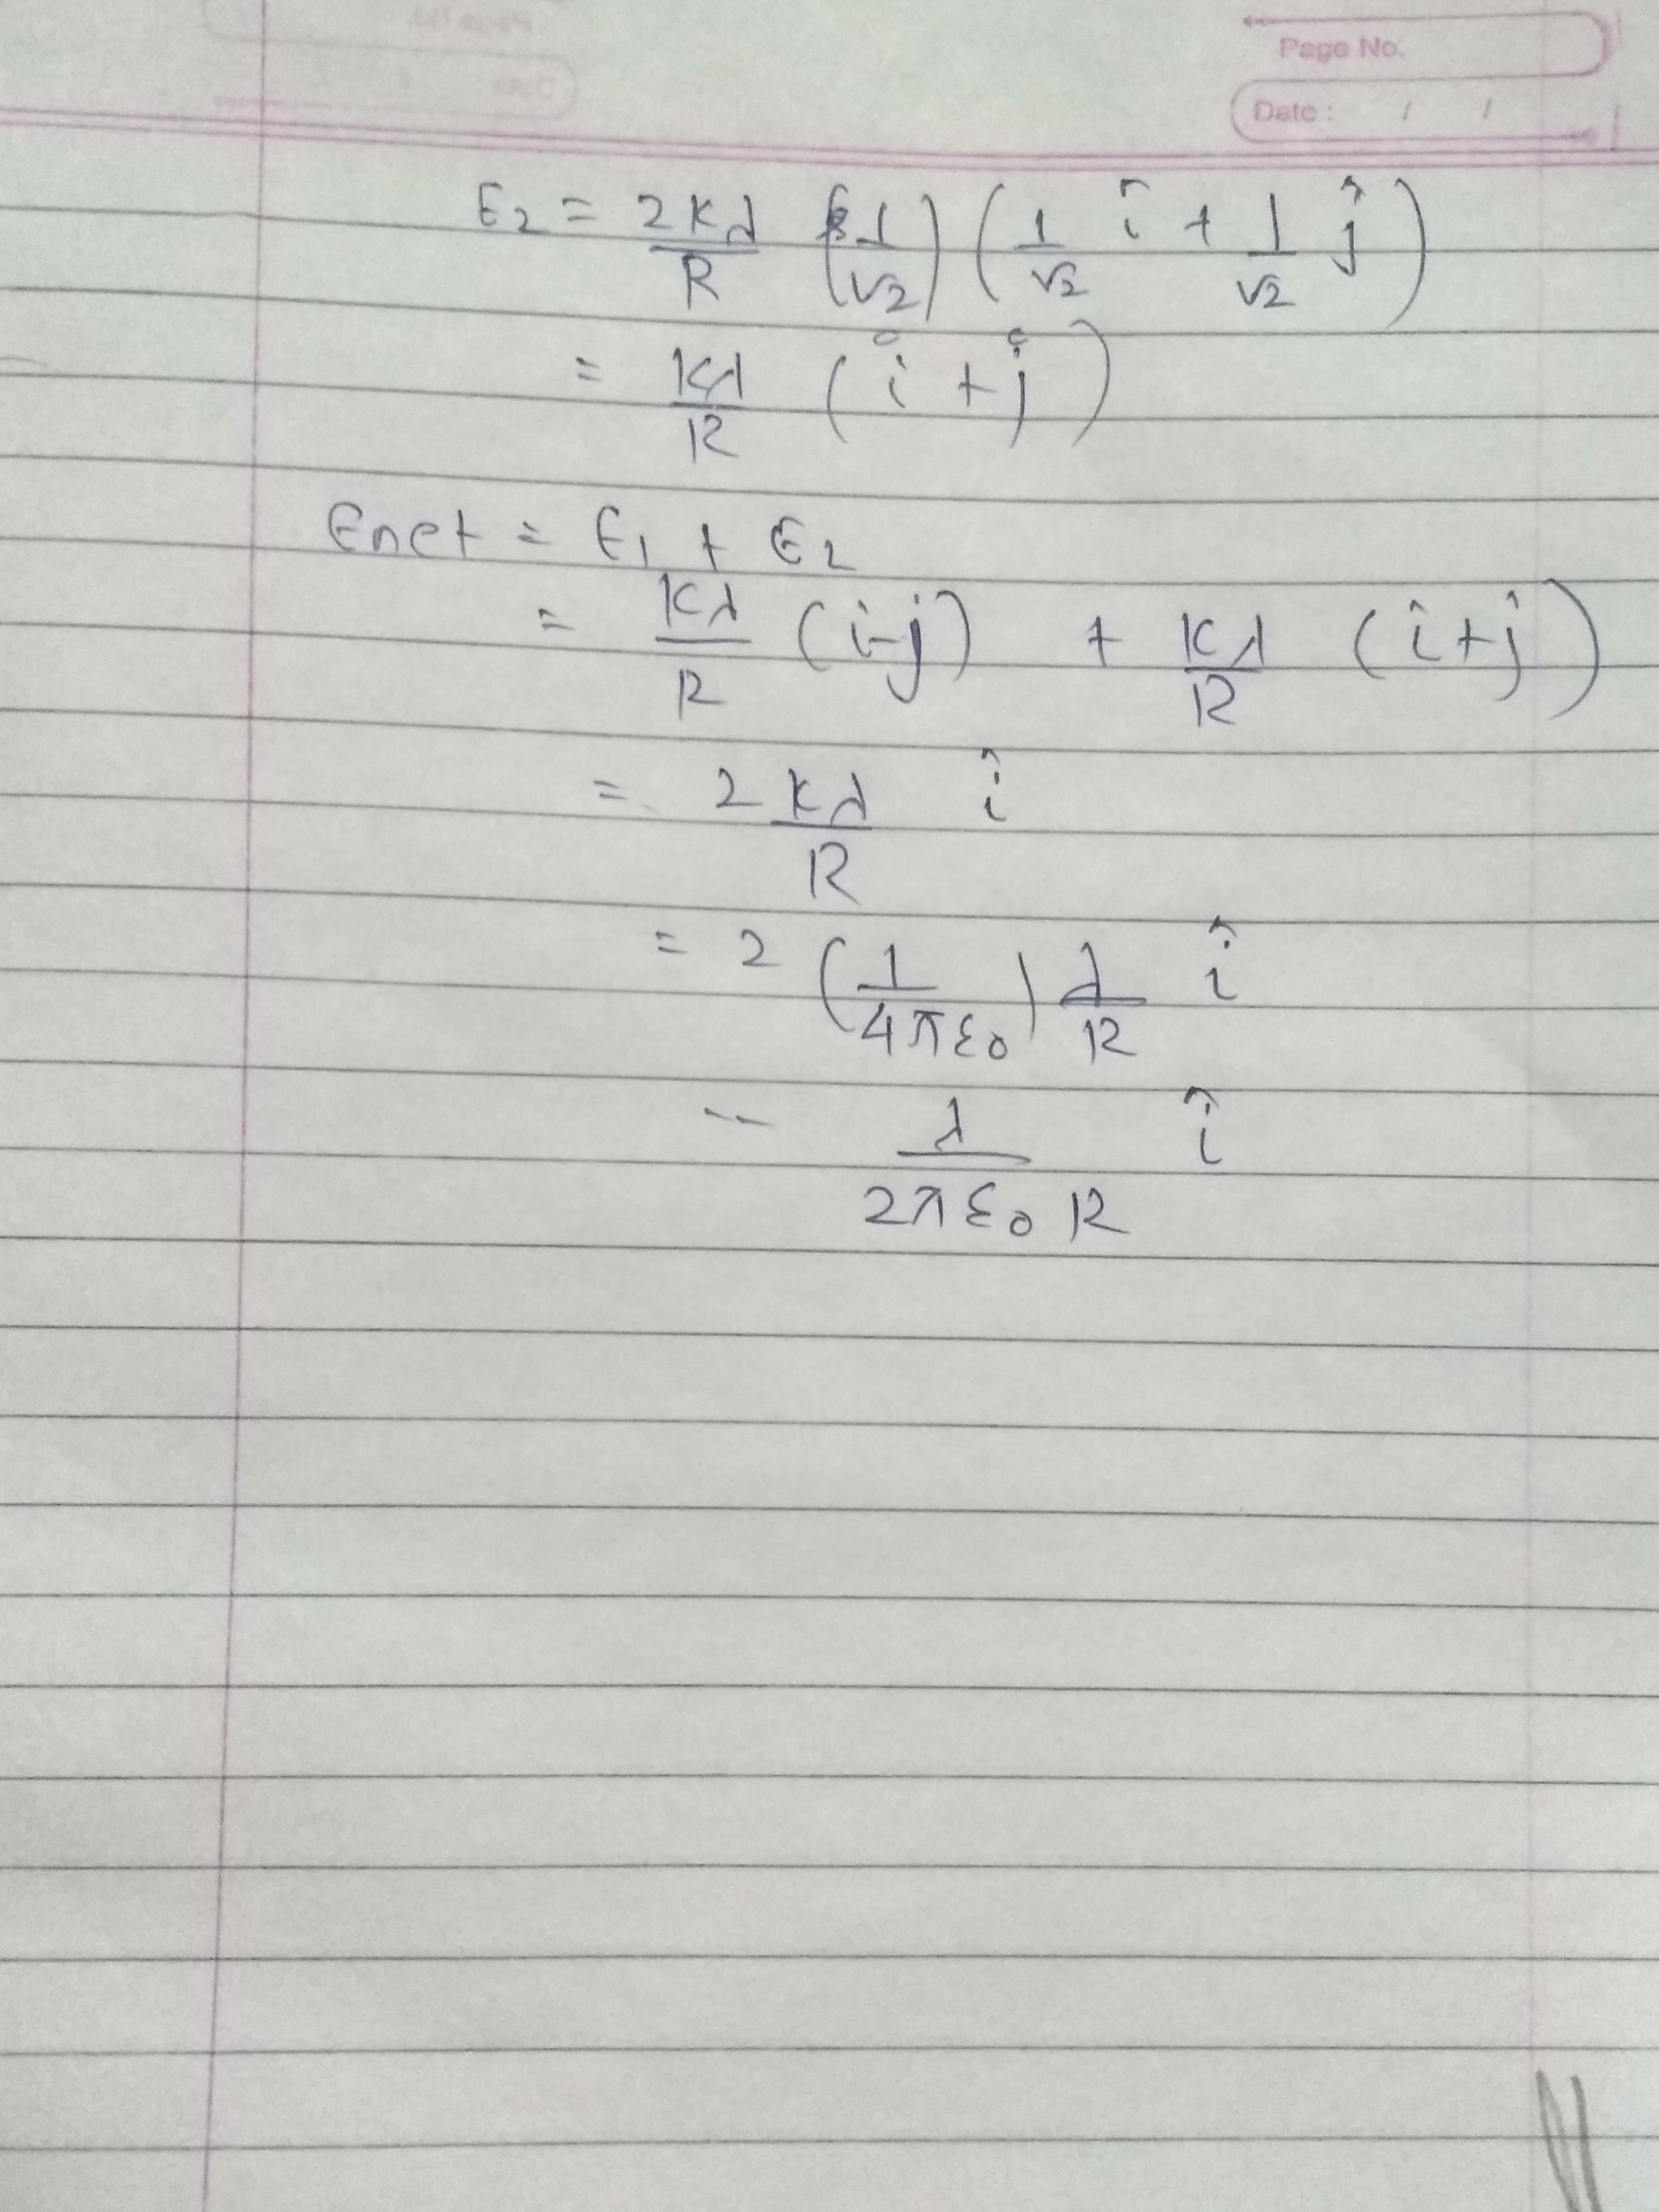 Page No.
Date : / /
E₂ = 2Kλ/R (1/√2) (1/√2 î + 1/√2 ĵ)
= Kλ/R (i + j)
Enet = E₁ + E₂
= Kλ/R (i-j) + Kλ/R (î + ĵ)
= 2Kλ/R î
= 2 (1/4πε₀) λ/R î
-- λ/2πε₀R î